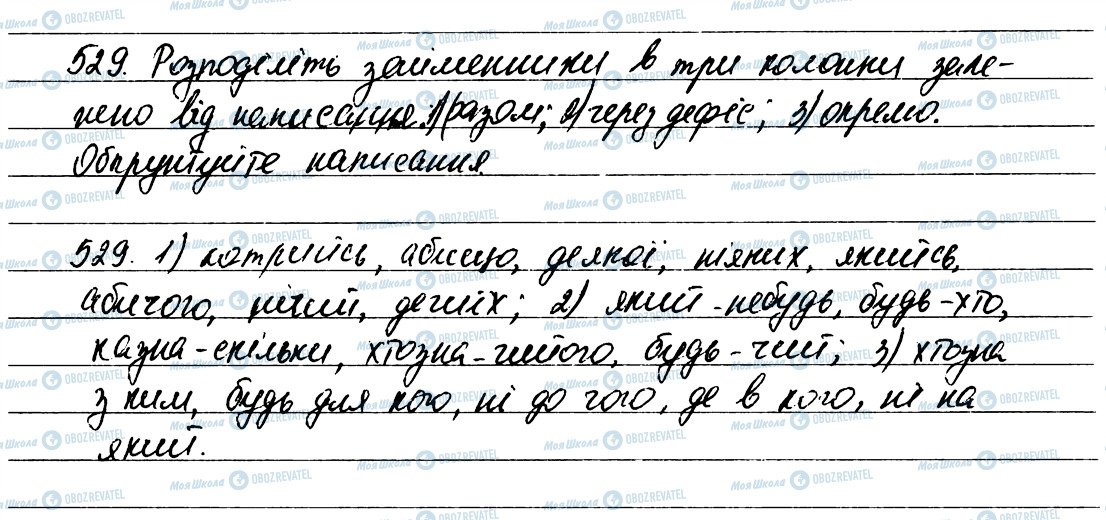 529. Розподіліть займенники в три колонки зале-
жно від написання: 1) разом; 2) через дефіс; 3) окремо.
Обґрунтуйте написання.
529. 1) котрийсь, абищо, деякої, ніяких, якийсь,
абичого, нічий, дечиїх; 2) який-небудь, будь-хто,
казна-скільки, хтозна-чийого, будь-чиї; 3) хтозна
з ким, будь для кого, ні до чого, де в кого, ні на
який.